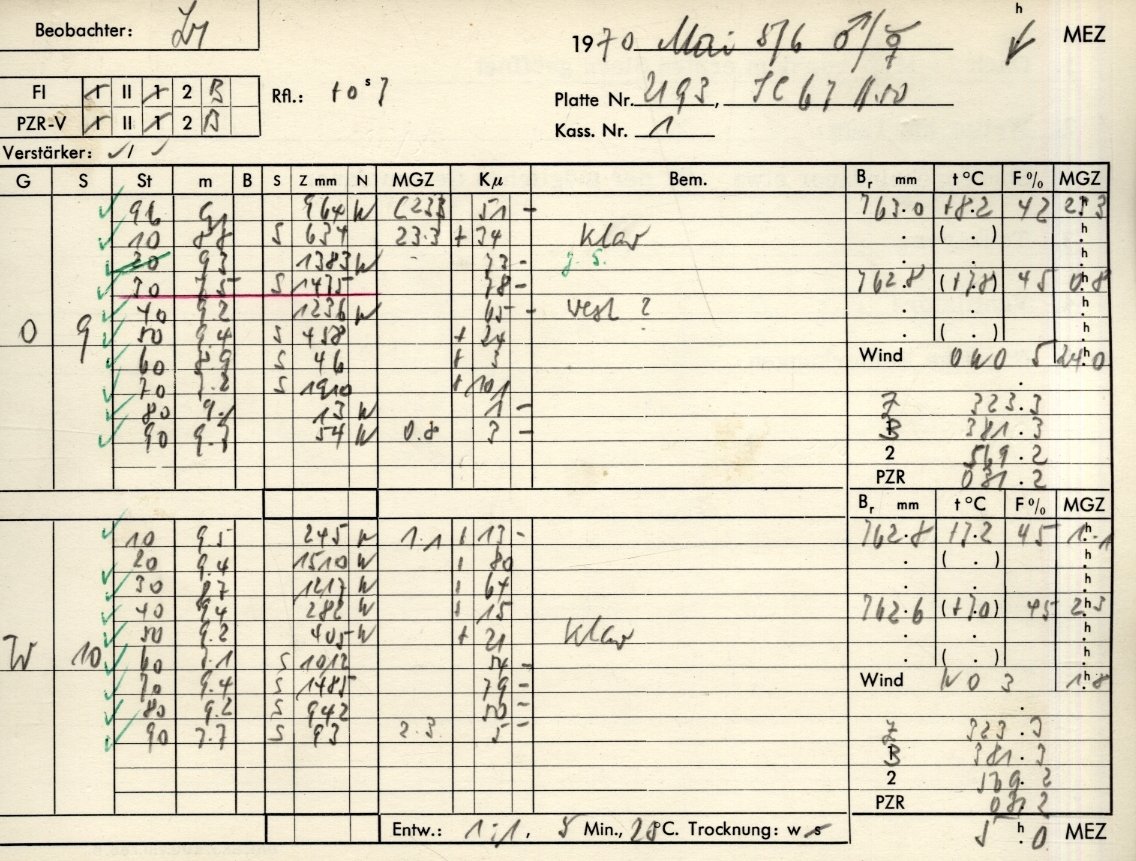 Beobachter:
1970 Mai 5/6 ♂/☿ h MEZ
FI I II 1 2 B
Rfl.: +0 s 7
Platte Nr. 2193,
PZR-V I II 1 2 B
Kass. Nr. 1
Verstärker:
G S St m B S Z mm N MGZ Kµ Bem. Br mm t °C F % MGZ
96 964 W (233 51 - 763.0 +8.2 42 23h3
10 8.8 S 634 23.3 + 34 klar ( . ) h
20 9.3 1383 W 73 - g. S. h
30 7.5 S 1475 78 - 762.8 (+7.8) 45 0h8
40 9.2 1236 W 65 - h
O 9 50 9.4 S 458 + 24 ( . ) h
60 8.9 S 46 + 3 Wind ONO 5 24h0
70 7.2 S 1910 + 101
80 9.1 13 W 1 - 7 323.3
90 9.3 54 W 0.8 3 - B 381.3
2 569.2
PZR 031.2
Br mm t °C F % MGZ
10 9.5 245 W 1.1 + 13 - 762.8 +7.2 45 1h1
20 9.4 1510 W + 80 ( . ) h
30 8.7 1217 W + 64 h
40 9.4 282 W + 15 762.6 (+7.0) 45 2h3
50 9.2 405 W + 21 klar h
W 10 60 7.1 S 1012 54 - ( . ) h
70 9.4 S 1485 79 - Wind NO 3 1h8
80 9.2 S 942 50 -
90 7.7 S 93 2.3 5 - 7 323.3
B 381.3
2 569.2
PZR 031.2
Entw.: 1:1, 5 Min., 20 °C. Trocknung: w s 5 h 0 MEZ